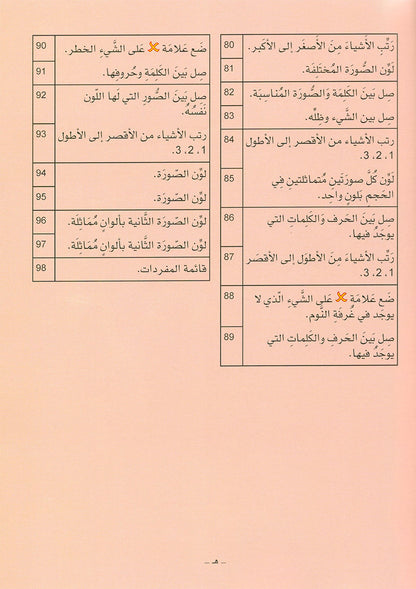 رَتِّبِ الأَشياءَ مِنَ الأَصغَرِ إلى الأَكبَر. 80
لَوِّن الصُّورَة المُختَلِفَة. 81
صِل بَينَ الكَلِمَة وَالصُّورَة المُناسِبَة. 82
صِل بين الشَّيء وظلِّه. 83
رتب الأشياء من الأقصر إلى الأطول 84
1، 2، 3.
لَوِّن كُلَّ صورَتَينِ مُتماثلتينِ فِي 85
الحَجمِ بَلونٍ واحِد.
صِل بَينَ الحَرف وَالكَلِماتِ التي 86
يوجَدُ فيها.
رَتِّبِ الأَشياءَ مِنَ الأَطوَل إلى الأَقصَر 87
1، 2، 3.
ضَع عَلامَة ✖ عَلى الشَّيءِ الّذي لا 88
يوجَد في غُرفَةِ النَّوم.
صِل بَينَ الحَرفِ والكَلِماتِ التي 89
يوجَدُ فيها.
ضَع عَلامَة ✖ عَلى الشَّيءِ الخطر. 90
صِل بَينَ الكَلِمَةِ وحُروفِها. 91
صِل بَينَ الصُّورِ التي لَها اللّون 92
نَفْسُهُ.
رتب الأشياء من الأقصر إلى الأطول 93
1، 2، 3.
لَوِّن الصّورَة. 94
لَوِّن الصّورَة. 95
لَوِّن الصّورَة الثّانية بألوانٍ مُمَاثِلَة. 96
لَوِّن الصّورَة الثَّانية بألوانٍ مُمَاثِلَة. 97
قائمة المفردات. 98
– هـ –